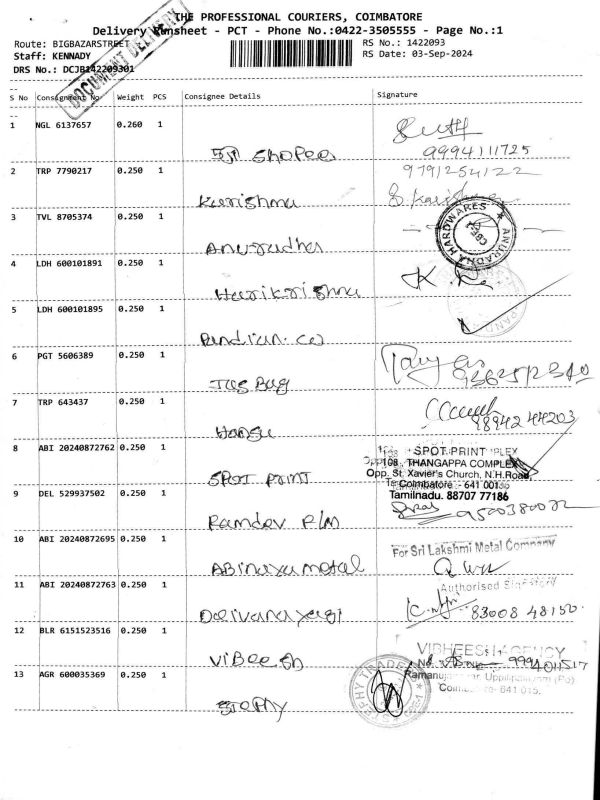 THE PROFESSIONAL COURIERS, COIMBATORE
Delivery Runsheet - PCT - Phone No.:0422-3505555 - Page No.:1
Route: BIGBAZARSTREET
RS No.: 1422093
Staff: KENNADY
RS Date: 03-Sep-2024
DRS No.: DCJB142209301
DOCUMENT DELIVERY
S No Consignment No Weight PCS Consignee Details Signature
1 NGL 6137657 0.260 1
SHOPEE
9994111725
2 TRP 7790217 0.250 1
9791254122
Karishma
3 TVL 8705374 0.250 1
ANURADHA HARDWARES
CBE
Anuradha
4 LDH 600101891 0.250 1
Harikrishna
5 LDH 600101895 0.250 1
Pandian. co
6 PGT 5606389 0.250 1
Jus Bag
7 TRP 643437 0.250 1
98942 44203
Hansu
8 ABI 20240872762 0.250 1
SPOT PRINT
108, THANGAPPA COMPLEX
Opp. St. Xavier's Church, N.H.Road,
Coimbatore - 641 001.
Tamilnadu. 88707 77186
SPOT PRINT
9 DEL 529937502 0.250 1
Ramdev P/M
10 ABI 20240872695 0.250 1
For Sri Lakshmi Metal Company
Authorised Signatory
ABinaya metal
11 ABI 20240872763 0.250 1
83008 48150
Deivanayagi
12 BLR 6151523516 0.250 1
VIBHEESH AGENCY
9994011517
Ramanujanagar, Uppilipalayam (Po)
Coimbatore- 641 015.
ViBeesh
13 AGR 600035369 0.250 1
STEPHY TRADERS
STEPHY